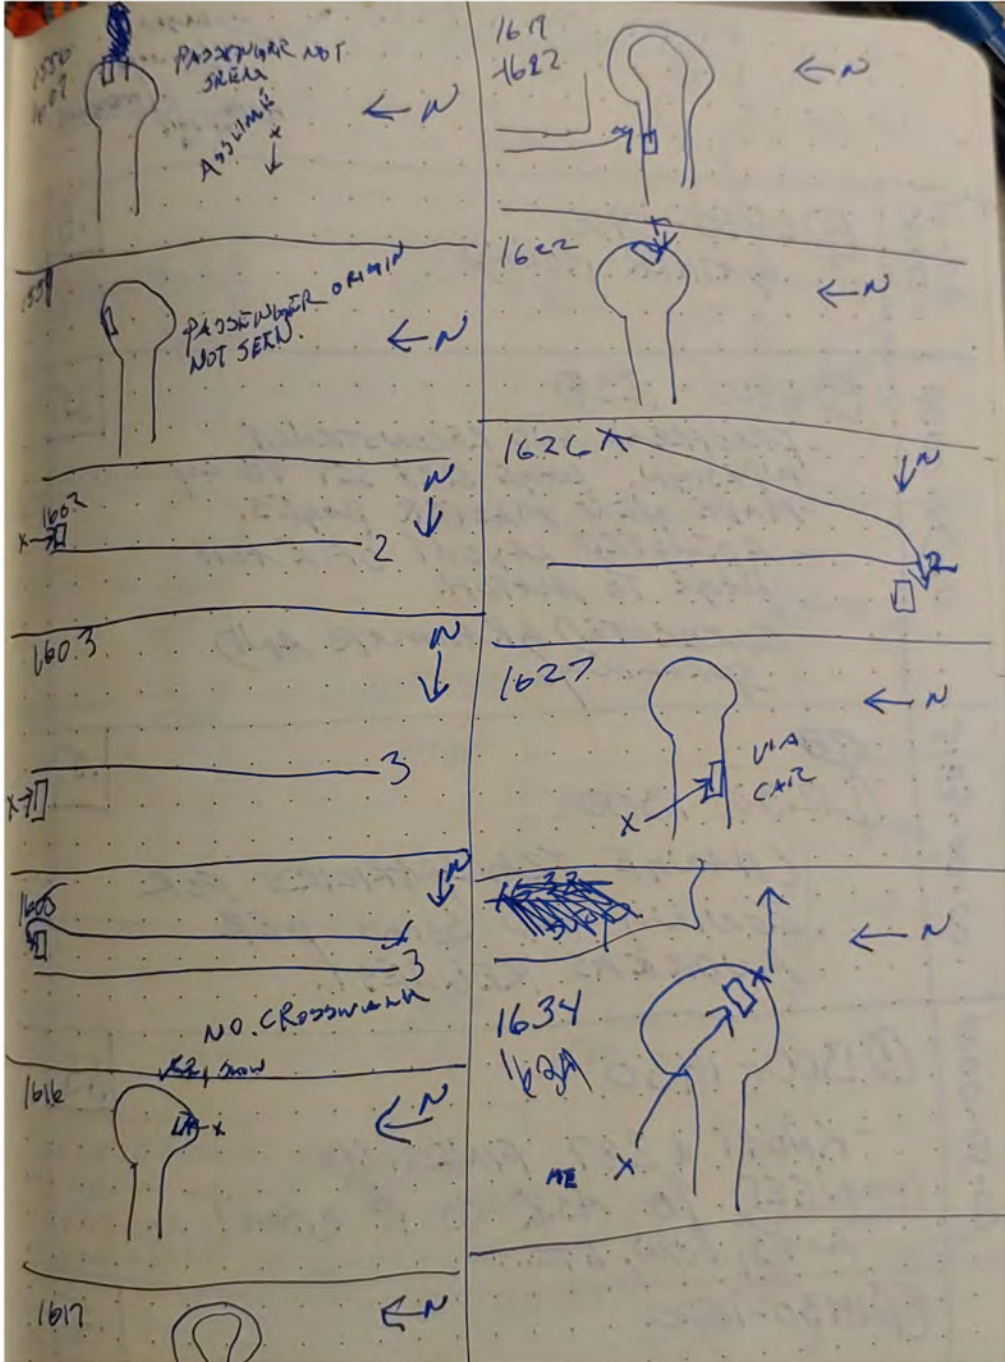 1556
PASSENGER NOT
SEEN
ASSUME
x
← N
1559
PASSENGER ORIGIN
NOT SEEN.
← N
N
1602
x
2
1603
N
x
3
1605
N
3
NO CROSSWALK
1616
x
← N
1617
← N
1622
← N
1622
← N
1626 X
N
1627
← N
VIA
CAR
X
← N
1634
ME X